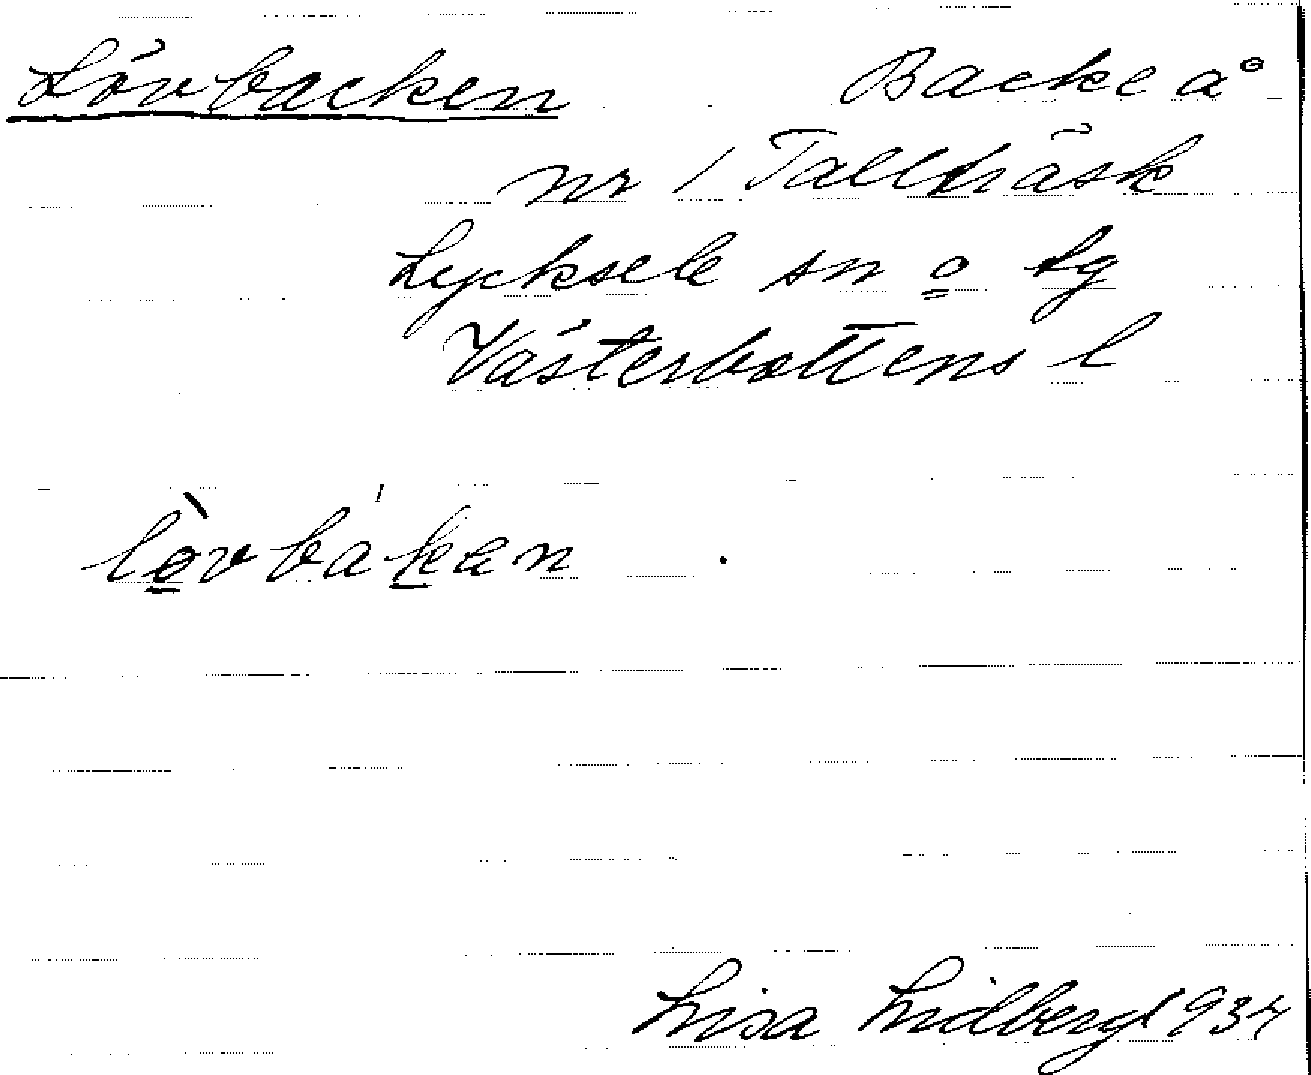 Lövbacken Backe å
nr 1 Tallträsk
Lycksele sn o tg
Västerbottens l
lòvbákan
Lisa Lidberg 1934